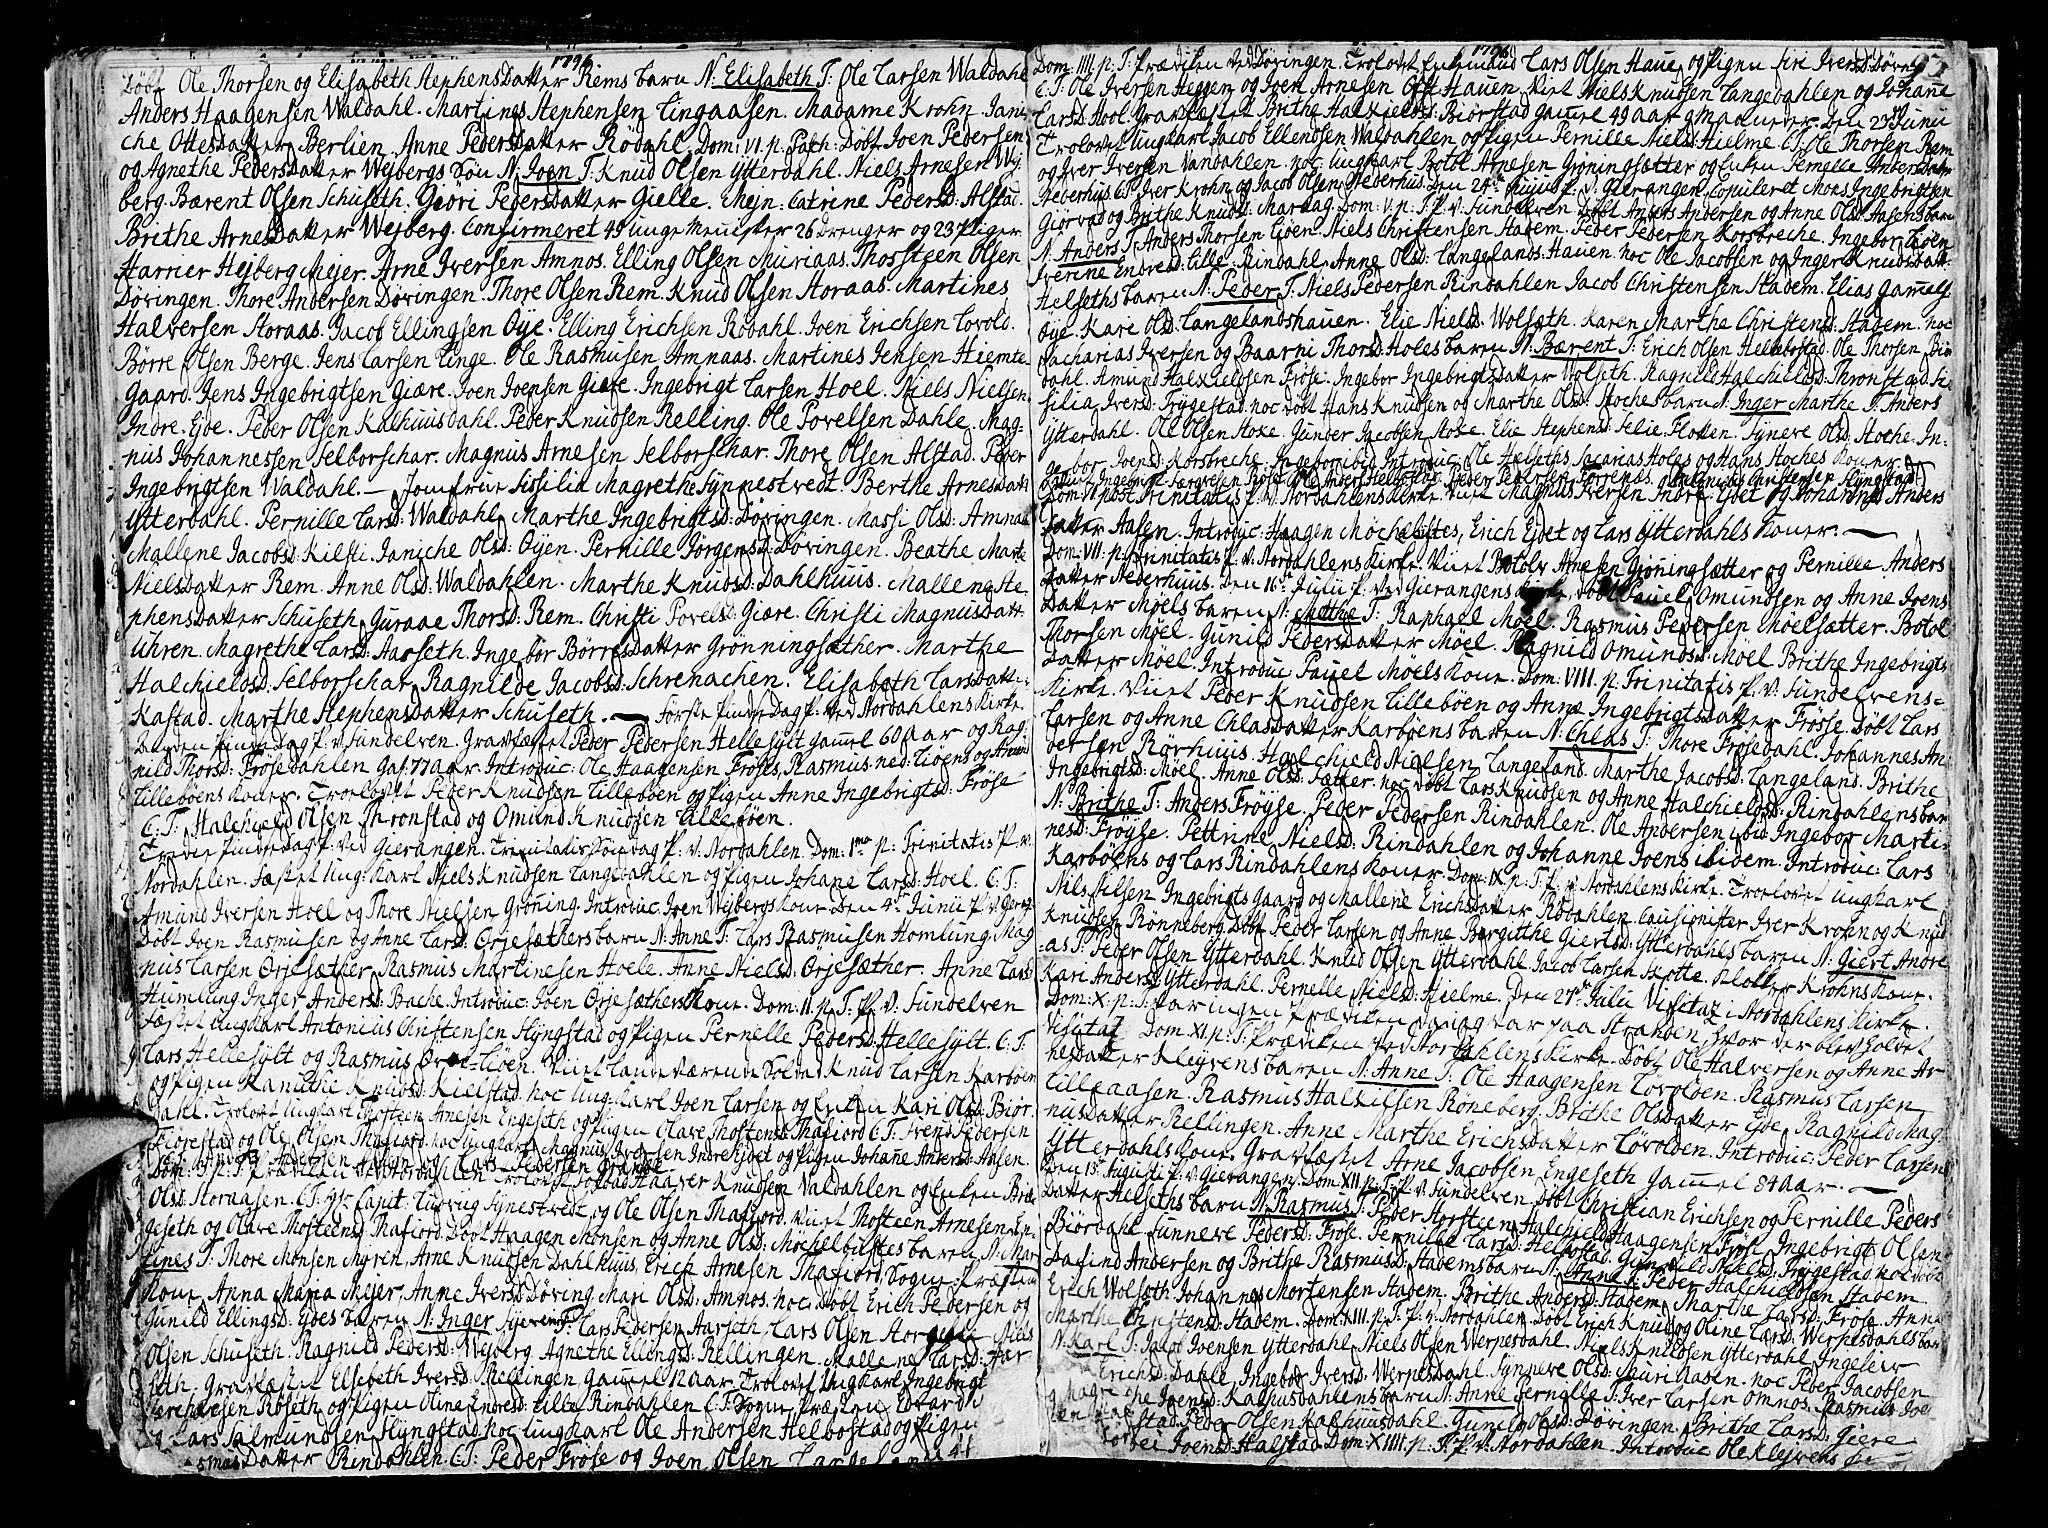 1796
Döbt Ole Thorsen og Elisabeth Stephensdatter Rems barn N. Elisabeth T: Ole Larsen Waldahl
Anders Haagensen Waldahl. Martines Stephensen Lingaasen. Madame Krohn. Jani
che Ottesdatter Berlien. Anne Pedersdatter Rödahl. Dom: VI. p. Pasch: Döbt Joen Pedersen
og Agnethe Pedersdatter Wejbergs Sön N. Joen T: Knud Olsen Ytterdahl. Niels Arnesen Wej
berg. Bærent Olsen Schuseth. Giöri Pedersdatter Gielle. Mejn: Catrine Pedersd: Alstad
Brithe Arnesdatter Wejberg. Confirmeret 49 unge Mennisker 26 Drenger og 23 Piger
Harrier Hejberg Mejer. Arne Iversen Amnos. Elling Olsen Muriaas. Thossteen Olsen
Dövingen. Thore Andersen Dövingen. Thore Olsen Rem. Knud Olsen Storaas. Martines
Halversen Storaas. Jacob Ellingsen Öye. Elling Erichsen Rödahl. Joen Erichsen Lovold.
Börre Olsen Berge. Jens Larsen Linge. Ole Rasmusen Amnaas. Martines Jensen Hiemte
gaard. Jens Ingebrigtsen Giære. Joen Joensen Giære. Ingebrigt Larsen Hoel. Niels Nielsen
Indre. Eide. Peder Olsen Kalhuusdahl. Peder Knudsen Relling. Ole Povelsen Dahle. Mag-
nus Johannessen Selborschar. Magnus Arnesen Selborschar. Thore Olsen Alstad. Peder
Ingebrigtsen Waldahl. — Jomfrue Sissilia Magrethe Synnestvedt. Berthe Arnesdatt
Ytterdahl. Pernille Larsd: Waldahl, Marthe Ingebrigtsd: Dövingen. Massi Olsd: Amnaas
Mallene Jacobsd: Kilsti. Janiche Olsd: Öyen. Pernille Jörgensd: Dövingen. Beathe Marte
Nielsdatter Rem. Anne Olsd: Waldahlen. Marthe Knudsd: Dahlhuus. Mallene Ste
phensdatter Schuseth. Guraae Thorsd: Rem. Christi Povelsd: Giære. Christi Magnusdatt
Uhren. Magrethe Larsd: Aarseth. Ingebor Börresdatter Grönningsæther. Marthe
Halchieldsd: Selborschar. Ragnilde Jacobsd: Schrenachen. Elisabeth Larsdatt:
Kastad. Marthe Stephensdatter Schuseth. — Förste Pindse Dag P. ved Nordahlens Kirke
Anden Pindse Dag P. v. Sundelven. Gravfæstet Peder Pedersen Hellesylt gamel 60 Aar og Rag
nild Thorsd: Frösedahlen Gal. 77 Aar. Introduc: Ole Haagensen Fröses, Rasmus ned: Liöens og
Lilleböens Koner. Troelovet Peder Knudsen Lilleböen og Pigen Anne Ingebrigtsd: Fröse
C: T: Halchield Olsen Thronstad og Omund Knudsen Lilleböen.
Tredie Pindsedag P. ved Gieranger. Trinitatis Söndag P. v. Nordahlen. Dom: 1ma p: Trinitatis P. v.
Nordahlen. Fæstet Ung: Karl Niels Knudsen Langedahlen og Pigen Johane Larsd: Hoel. C: T:
Amund Iversen Hoel og Thore Nielsen Gröning. Introduc: Joen Wejbergs Kone. Den 4de Junii P. v. Geranger
Döbt Joen Rasmusen og Anne Larsd: Örjesæthers barn N. Anne T: Lars Rasmusen Homlung. Mag
nus Larsen Örjesæther. Rasmus Martinesen Hoele. Anne Nielsd: Örjesæther. Anne Larsd:
Humlung Inger Andersd: Bache. Introduc: Joen Örjesæthers Kone. Dom: II. p. T: P. v. Sundelven
Fæstet Ungkarl Antonius Christensen Slyngstad og Pigen Pernelle Pedersd: Hellesylt. C: T:
Lars Hellesylt og Rasmus Liöen. Viet Landeværende Soldat Knud Larsen Karböen
og Pigen Kanutie Knudsd: Kielstad noc Ung: Karl Joen Larsen og Enken Kari Olsd: Biör
dahl. Trolovet Ungkarl Thosteen Arnesen Engeseth og Pigen Olave Thostensd: Thafiord C: T: Svend Pedersen
Fiörestad og Ole Olsen Thafiord. noc Ungkarl Magnus Iversen Indre Eidet og Pigen Johane Andersd: Aasen.
C: T: Andersen og Lars Pedersen Grande
Dom: III p. T. Prædiken ved Nordahlen Trolovet Haaver Knudsen Valdahlen og Enken
Olsd: Storaasen. C: T: Hr. Capit. Ludvig Synestvedt og Ole Olsen Thafiord. Viet Thosteen Arnesen En
geseth og Olave Thosteensd: Thafiord. Döbt Haagen Monsen og Anne Olsd: Mochelbustes barn N. Mar
tines T: Thore Monsen Myren. Arne Knudsen Dahlhuus, Erich Arnesen Thafiord, Sogne Præstens
Kone, Anna Maria Mejer, Anne Iversd: Döving. Mari Olsd: Amnos. noc Döbt Erich Pedersen og
Gunild Ellingsd: Eides barn N. Inger T: Lars Pedersen Aarseth, Lars Olsen Niels
Olsen Schuseth. Ragnild Pedersd: Wejberg. Agnethe Ellingsd: Rellingen. Mallene Larsd: Aar
seth. Gravfæstet Elsebeth Iversd: Rellingen gamel 12 Aar. Trolovet Ungkarl Ingebrigt
Röseth og Pigen Oline Endresd: Lille Rindahlen C: T: Sogne Præsten Edvard
og Lars Salmundsen Slyngstad noc Ungkarl Ole Andersen Helbostad og Pigen
datter Rindahlen C: T: Peder Fröse og Joen Olsen
1796
Dom: IIII p. T: Prædiken ved Dövingen. Trolovet Enkemand Lars Olsen Haue og Pigen Siri Iversd: Döving
C: T: Ole Iversen Heggem og Joen Arnesen Offt Hauen. Viet Niels Knudsen Langedahlen og Johane
Larsd: Hoel. Gravfæstet Brithe Halkieldsd: Biörstad gamle 49 aar 9 Maaneder. Den 23 Junii
Trolovet Ungkarl Jacob Ellendsen Waldahlen og Pigen Pernille Nielsd: Hielme C: T: Ole Thorsen Rem
og Iver Iversen Vandahlen. noc Ungkarl Botol Arnesen Gröningsætter og Enken Pernelle Andersdatter
Nederhus C: T: Iver Krohn og Jacob Olsen Nederhus. Den 24de P. v. Gierangen Copuleret Mons Ingebrigtsen
Giörvad og Brithe Knudsd: Maraag. Dom: V. p: T. P. v. Sundelven Döbt Anders Andersen og Anne Olsd: Aasens barn
N. Anders T: Anders Thorsen Liöen. Niels Christensen Stadem. Peder Pedersen Korsbreche. Ingebor Liöen
Iverine Endresd: Lille-Rindahl. Anne Olsd: Langelands: Hauen. noc Ole Jacobsen og Inger Knudsdatt:
Helseths barn N. Peder T. Niels Pedersen Rindahlen Jacob Christensen Stadem. Elias Gamels
Öye. Kari Olsd: Langelandshauen. Elie Nielsd: Wolsæth. Karen Marthe Christensd: Stadem. noc
Zacharias Iversen og Baarni Thorsd: Holes barn N. Bærent T: Erich Olsen Hellebostad. Ole Thorsen Biör
dahl. Amund Halkieldsen Fröse. Ingebor Ingebrigtsdatter Wolseth. Ragnild Halchieldsd: Thronstad Si
silia Iversd: Trygestad noc Döbt Hans Knudsen og Marthe Olsd: Stoches barn N. Inger Marthe T. Anders
Ytterdahl. Ole Olsen Stoxe. Gunder Jacobsen Stoxe. Elie Stephensd: Selie. Flotten. Synneve Olsd: Stoche. In-
gebor Joensd: Korsbreche. Ingebor ibid. Introduc: Ole Helseths, Sacarias Holes og Hans Stoches Koner.
Dom: VI post Trinitatis P. v. Nordahlens Kirke. Viet Magnus Iversen Indre Eidet og Johanne Anders
datter Aasen. Introduc: Haagen Mochelbustes, Erich Eidet og Lars Ytterdahls Koner. —
Dom: VII. p. Trinitatis P. v. Nordahlens Kirke. Viet Botolv Arnesen Gröningsætter og Pernille Anders
datter Nederhuus. Den 16de Julii P. ved Gierangens Döbt Pauel Omundsen og Anne Joens
datter Möels barn N. Mathe T: Raphael Möel. Rasmus Pedersen Möelsætter. Botol
Thorsen Möel. Gunild Pedersdatter Möel. Ragnild Omundsd: Möel Brithe Ingebrigts
datter Möel. Introduc Pauel Moels Kone. Dom: VIII. p. Trinitatis P. v. Sundelvens-
Kirke. Viet Peder Knudsen Lilleböen og Anne Ingebrigtsdatter Frösse. Döbt Lars
Larsen og Anne Chlasdatter Karböens barn N. Chlas T: Thore Frösedahl. Johannes An
dersen Rörhuus. Halchield Nielsen Langeland. Marthe Jacobsd: Langelans. Brithe
Ingebrigtsd: Möel. Anne Olsd: Sætter. noc Döbt Lars Knudsen og Anne Halchieldsd: Rindahlens barn
N. Brithe T: Anders Fröyse. Peder Pedersen Rindahlen. Ole Andersen ibid Ingebor Marti
nesd: Fröyse. Pettrine Nielsd: Rindahlen og Johanne Joens ibidem. Introduc: Lars
Karböens og Lars Rindahlens Koner. Dom: IX p: T. P. v. Nordahlens Kirke. Trolovet Ungkarl
Nils Nilsen Ingebrigts Gaard og Mallene Erichsdatter Rödahlen Causionister Iver Krohn og Knud
Knudsen Rönneberg. Döbt Peder Larsen og Anne Bergitthe Giertsd: Ytterdahls barn N: Giert Andre
as T: Peder Olsen Ytterdahl. Knud Olsen Ytterdahl Jacob Larsen Skotte. Klokker Krohns Kone.
Kari Andersd: Ytterdahl. Pernelle Nielsd: Hielme. Den 27de Julii Visitaz i Nordahlens Kirke.
Dom: X. p: T: var ingen Prædiken, Provst var paa Stranden, hvor der blev holdet
Visitaz Dom XI. p: T: Prædiken ved Nordahlens Kirke. Döbt Ole Halversen og Anne Ar
nesdatter Kleivens barn N. Anne T: Ole Haagensen Lovolen. Rasmus Larsen
Lilleaasen. Rasmus Halkilsen Röneberg. Brithe Olsdatter Eide, Ragnild Mag
nusdatter Rellingen. Anne Marthe Erichsdatter Lovolden. Introduc: Peder Larsen
Ytterdahls Kone. Gravfæstet Arne Jacobsen Engeseth Gammel 84 Aar. —
Den 13 Augusti P. v. Gierangen. Dom XII p: T: P. v. Sundelven. Döbt Christian Erichsen og Pernille Peders
datter Helseths barn N. Rasmus T: Peder Horsteen, Halchield Haagensen Fröse Ingebrigt Olsen
Biördahl Sunneve Pedersd: Fröse. Pernille Larsd: Helbostad. Gunild Nielsd: Trygestad noc döbt
Dafind Andersen og Brithe Rasmusd: Stadems barn N. Anne T: Peder Halchieldsen Stadem
Erich Wolseth Johannes Mortensen Stadem. Brithe Andersd: Stadem. Marthe Larsd: Fröse. Anne
Marthe Christensd: Stadem. Dom: XIII. p. T. P. v. Nordahlen. Döbt Erich Knuds og Oline Larsd: Werpesdahls barn
N. Karl T: Jacob Joensen Ytterdahl. Niels Olsen Werpesdahl. Niels Knudsen Ytterdahl. Ingeber
Erichsd: Dahle, Ingebor Iversd: Werpesdahl. Synneve Olsd: Muri Aasen. noc Peder Jacobsen
Joensd: Kalhusdahlens barn N: Anne Pernelle T: Iver Larsen Omnos. Rasmus Joe
Peder Olsen Kalhuusdahl. Gunild Olsd: Dövingen. Brithe Larsd: Giere
Joensd: Halstad. Dom XIIII. p. T. P. v. Nordahlen. Introduc Ole Kleivens